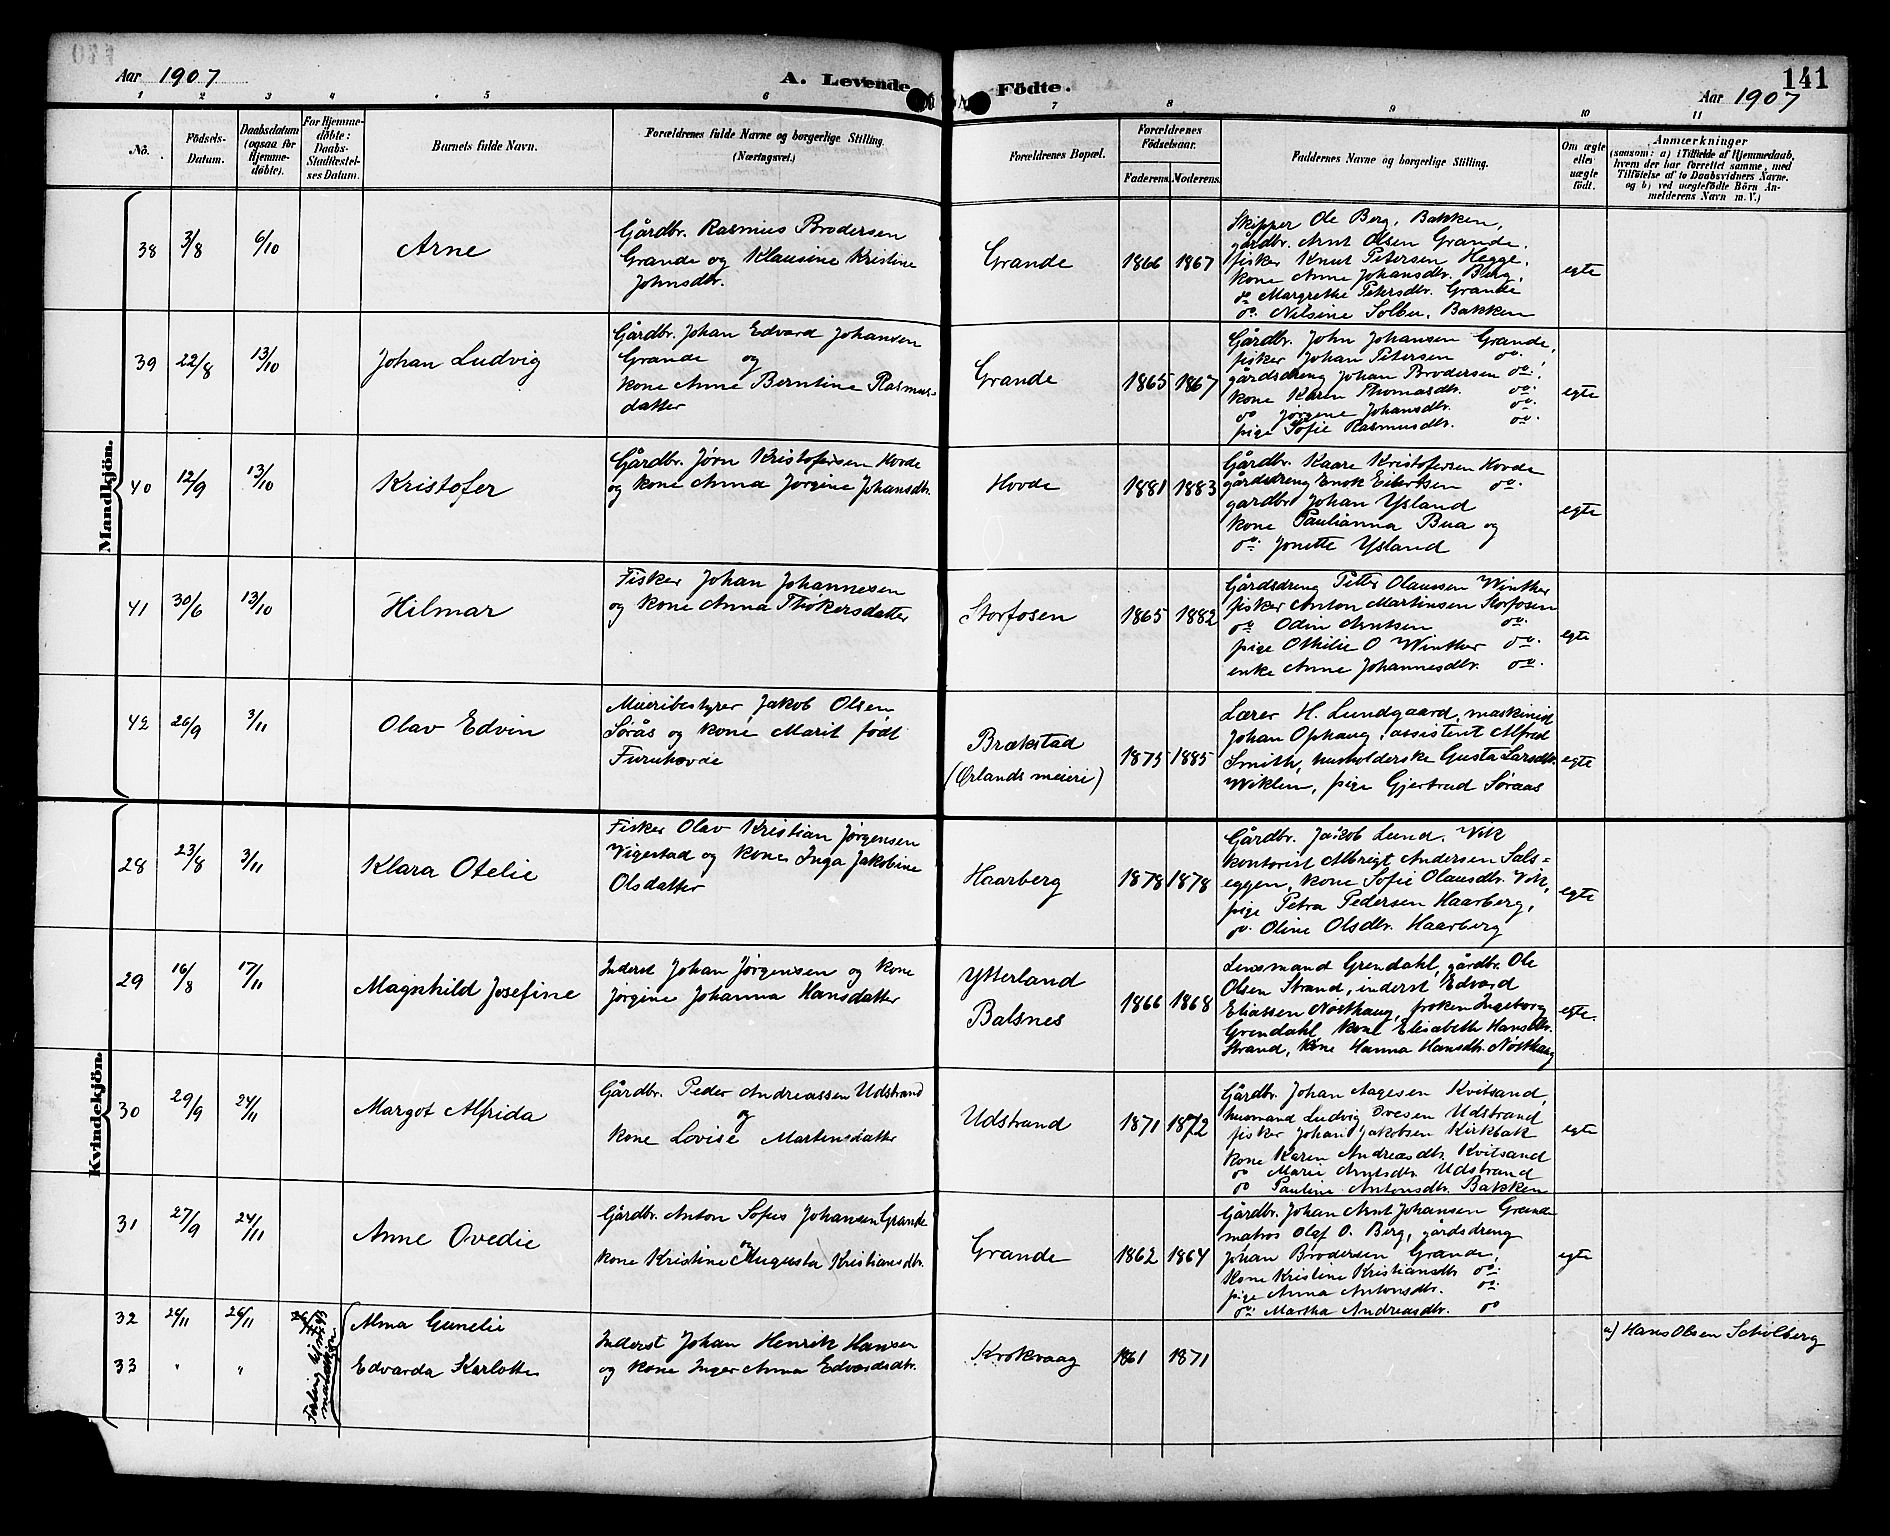 Aar 1907
A. Levende
Födte.
Aar 1907
141
1 2 3 4 5 6 7 8 9 10 11
No.
Födsels-
Datum.
Daabsdatum
(ogsaa för
Hjemme-
döbte).
For Hjemme-
döbte:
Daabs-
Stadfæstel-
ses Datum.
Barnets fulde Navn.
Forældrenes fulde Navne og borgerlige Stilling.
(Næringsvei.)
Forældrenes Bopæl.
Forældrenes
Födselsaar.
Faderens. Moderens.
Faddernes Navne og borgerlige Stilling.
Om ægte
eller
uægte
födt.
Anmærkninger
(saasom: a) i Tilfælde af Hjemmedaab,
hvem der har forrettet samme, med
Tilföielse af to Daabsvidners Navne.
og b) ved uægtefödte Börn An-
melderens Navn m. V.)
Mandkjön.
38 3/8 6/10 Arne
Gårdbr. Rasmus Brodersen
Grande og Klausine Kristine
Johnsdtr.
Grande 1866 1867
Skipper Ole Berg, Bakken,
gårdbr. Arnt Olsen Grande.
fisker Knut Petersen Hegge,
kone Anne Johansdtr. Berg,
do Margrethe Petersdtr. Grande
do. Nilsine Solbu, Bakken
egte
39 22/8 13/10 Johan Ludvig
Gårdbr. Johan Edvard Johansen
Grande og
kone Anne Berntine Rasmus-
datter
Grande 1865 1867
Gårdbr. John Johansen Grande,
fisker Johan Petersen do.
gårdsdreng Johan Brodersen do.
kone Karen Thomasdtr. do.
do Jørgine Johansdtr. do.
pige Sofie Rasmusdtr. do.
egte
40 12/9 13/10 Kristofer
Gårdbr. Jørn Kristofersen Hovde
og kone Anna Jørgine Johansdtr.
Hovde 1881 1883
Gårdbr. Kaare Kristofersen Hovde
gårdsdreng Enok Eilertsen do.
gardbr. Johan Ysland
kone Paulianna Bua og
do. Jonette Ysland
egte
41 30/6 13/10 Hilmar
Fisker Johan Johannesen
og kone Anna Thokersdatter
Storfosen 1865 1882
Gårdsdreng Petter Olaussen Winther
fisker Anton Martinsen Storfosen
do Odin Arntsen do.
pige Othilie O Winther do.
enke Anne Johannesdtr. do.
egte
42 26/9 3/11 Olav Edvin
Meieribestyrer Jakob Olsen
Sørås og kone Marit født
Furuhovde
Brækstad
(Ørlands meieri)
1875 1885
Lærer H. Lundgaard, maskinist
Johan Ophaug, assistent Alfred
Smith, husholderske Gusta Larsdtr.
Wiklem, pige Gjertrud Søraas
egte
Kvindekjön.
28 23/8 3/11 Klara Otelie
Fisker Olav Kristian Jørgensen
Vigestad og kone Inga Jakobine
Olsdatter
Haarberg 1878 1878
Gårdbr. Jakob Lund. Vik
kontorist Albrigt Andersen Sals-
eggen, kone Sofie Olausdtr. Vik,
pige Petra Pedersen Haarberg,
do. Oline Olsdtr. Haarberg
egte
29 16/8 17/11 Magnhild Josefine
Inderst Johan Jørgensen og kone
Jørgine Johanna Hansdatter
Ytterland
Balsnes
1866 1868
Lensmand Grendahl, gårdbr. Ole
Olsen Strand, inderst Edvard
Eliassen Nøsthaug, frøken Ingeborg
Grendahl kone Elisabeth Hansdtr.
Strand, kone Hanna Hansdtr. Nøsthaug
egte.
30 29/9 24/11 Margot Alfrida
Gårdbr. Peder Andreassen Udstrand
og
kone Lovise Martensdatter
Udstrand 1871 1872
Gårdbr. Johan Aagesen Kvitsand,
husmand Ludvig Ovesen Udstrand
fisker Johan Jakobsen Kirkbak
kone Karen Andreasdtr. Kvitsand
do Marie Arntsdtr. Udstrand
do Pauline Antonsdtr. Bakken
egte
31 27/9 24/11 Anne Ovedie
Gårdbr. Anton Sofus Johansen Grande
og
kone Kristine Augusta Kristiansdtr.
Grande 1862 1864
Gårdbr. Johan Arnt Johansen Grande
matros Olaf O. Berg, gårdsdreng
Johan Brodersen Grande,
kone Kristine Kristiansdtr do.
pige Anna Antonsdtr. do.
do. Martha Andreasdtr. do
egte
32 24/11 26/11 Alma Gunelie
33 " " Edvarda Karlotte
Inderst Johan Henrik Hansen
og kone Inger Anna Edvardsdtr.
Krokvaag 1861 1871
a) Hans Olsen Schölberg